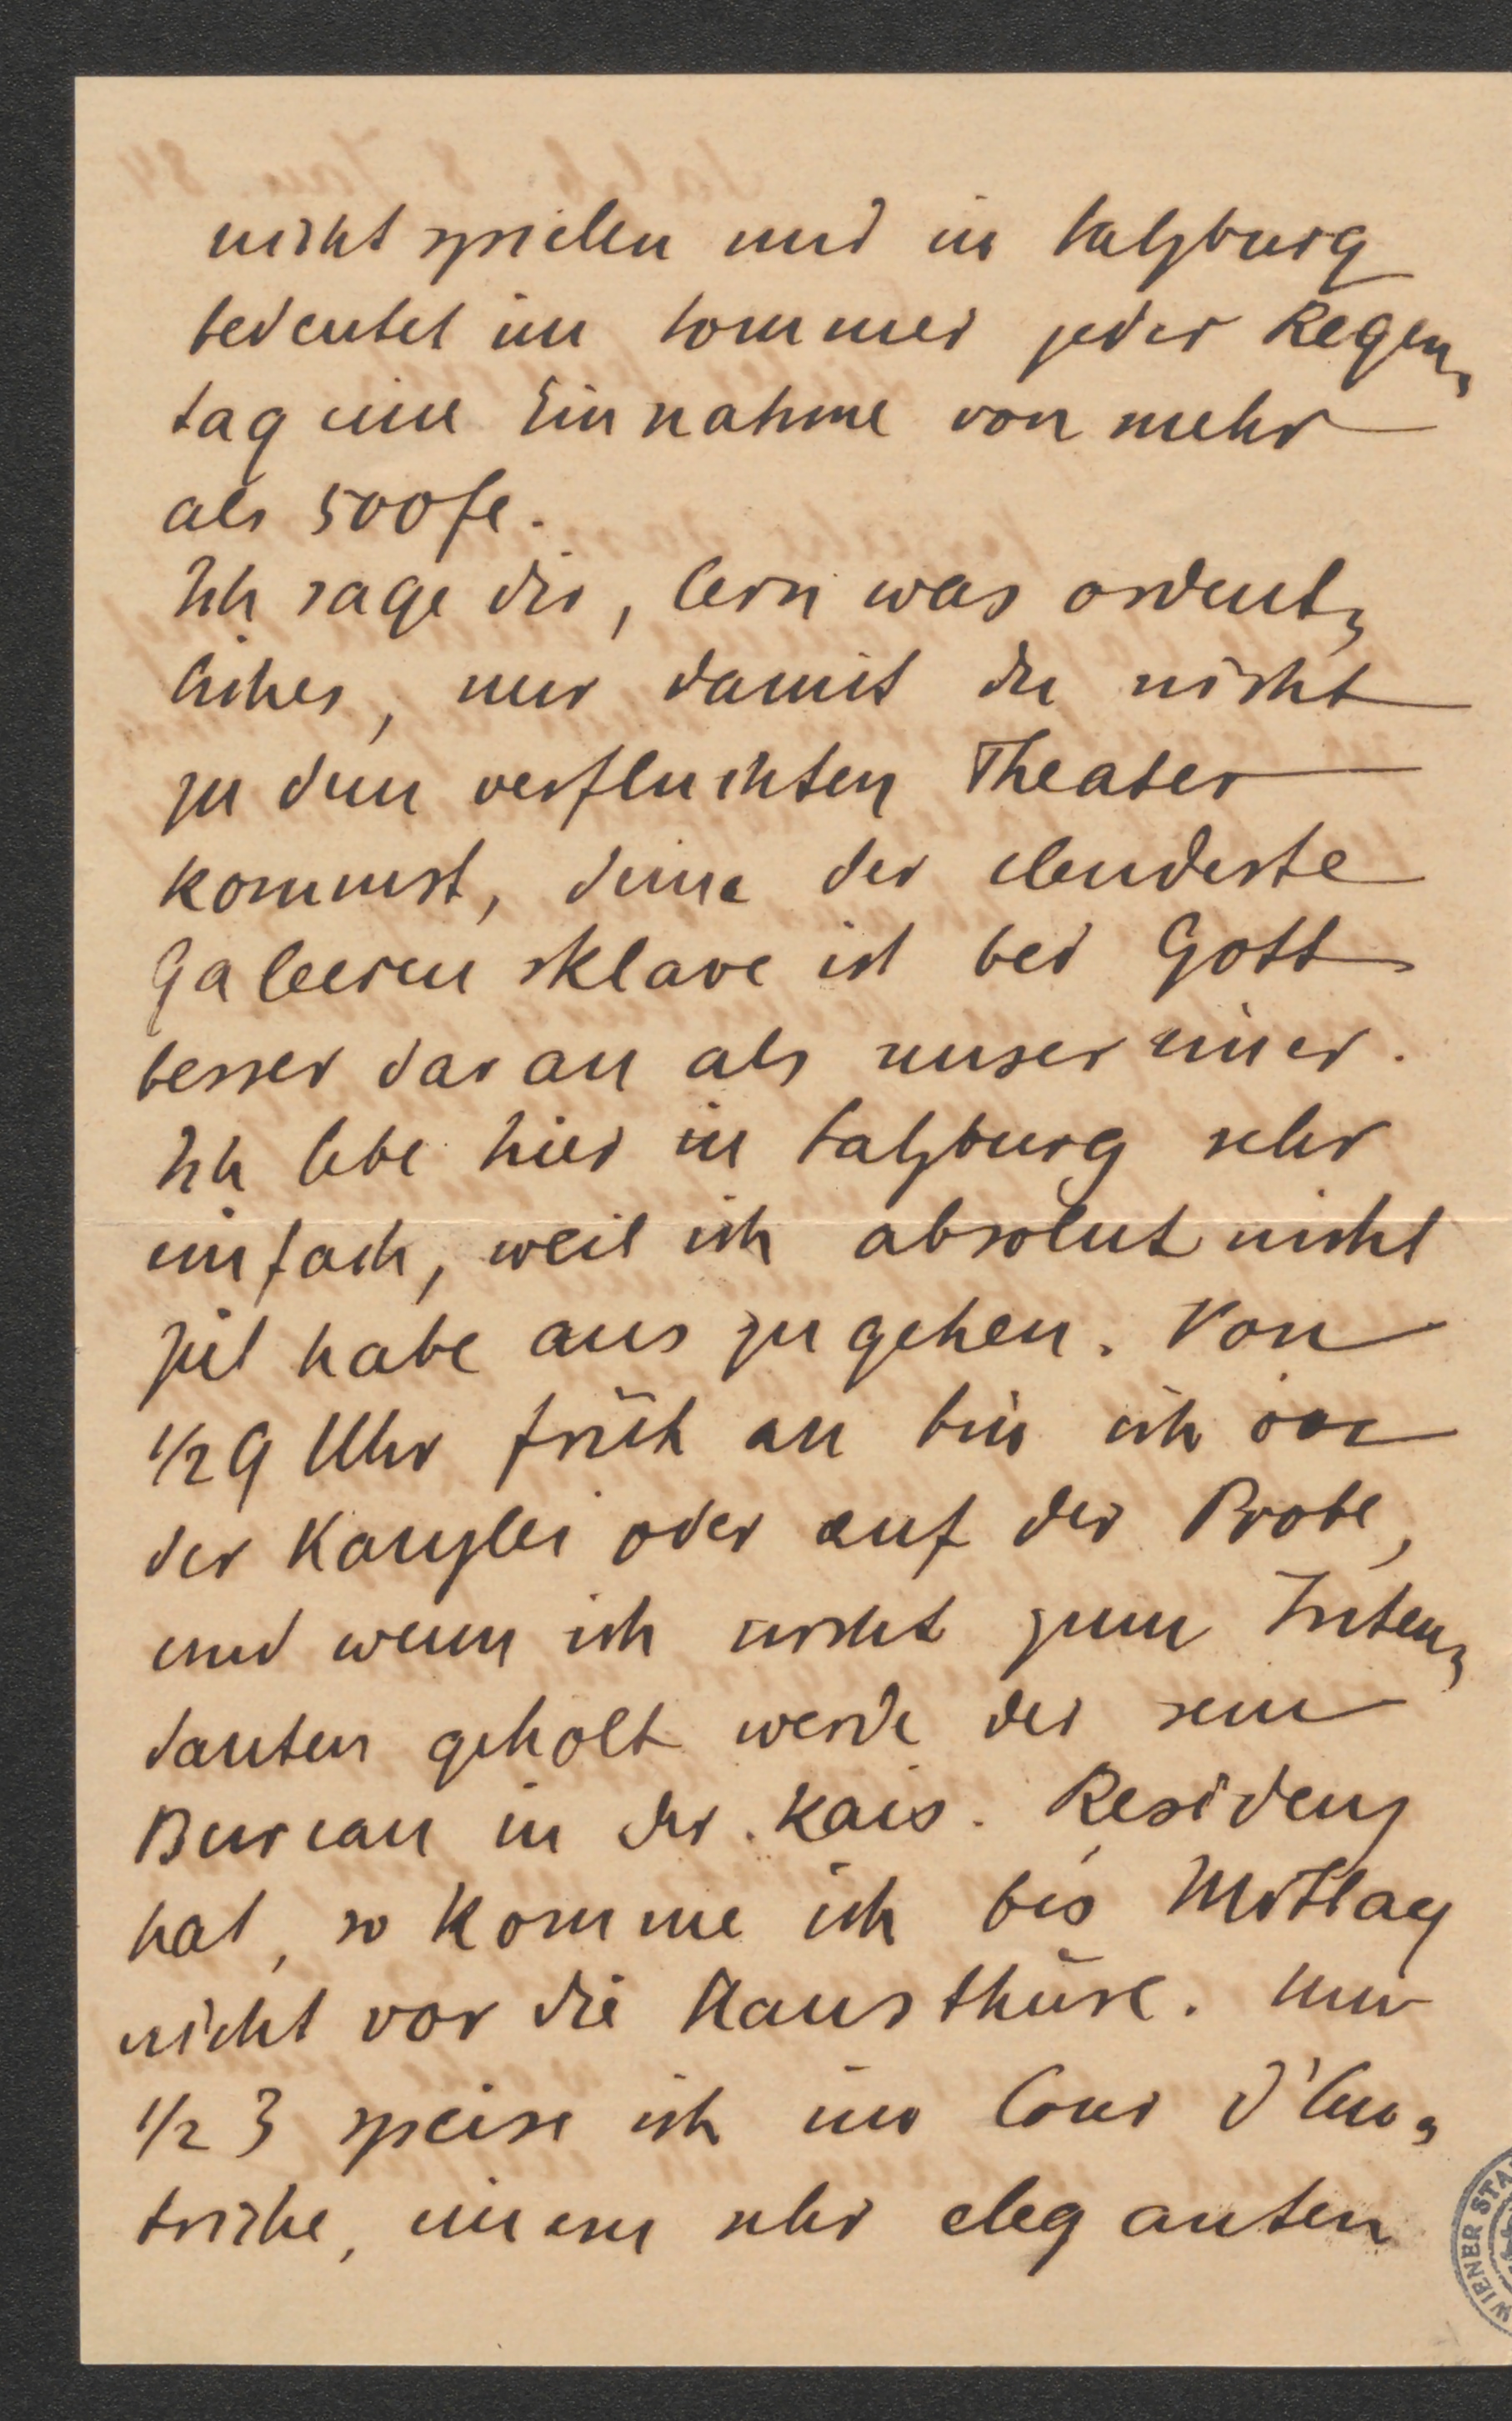 nicht spielen und in Salzburg
bedeutet im Sommer jeder Regen-
tag eine Einnahme von mehr
als 500 fl.
Ich sage dir, lern was ordent-
liches, nur damit du nicht
zu dem verfluchten Theater
kommst, denn der elendeste
Galeerensklave ist bei Gott
besser daran als unser einer.
Ich lebe hier in Salzburg sehr
einfach, weil ich absolut nicht
Zeit habe auszugehen. Von
1/2 9 Uhr früh an bin ich in
der Kanzlei oder auf der Probe,
und wenn ich nicht zum Inten-
danten geholt werde der sein
Bureau in der kais. Residenz
hat, so komme ich bis Mittag
nicht vor die Hausthüre. Um
1/2 3 speise ich im Cour d'Au-
triche, einem sehr eleganten
WIENER STA